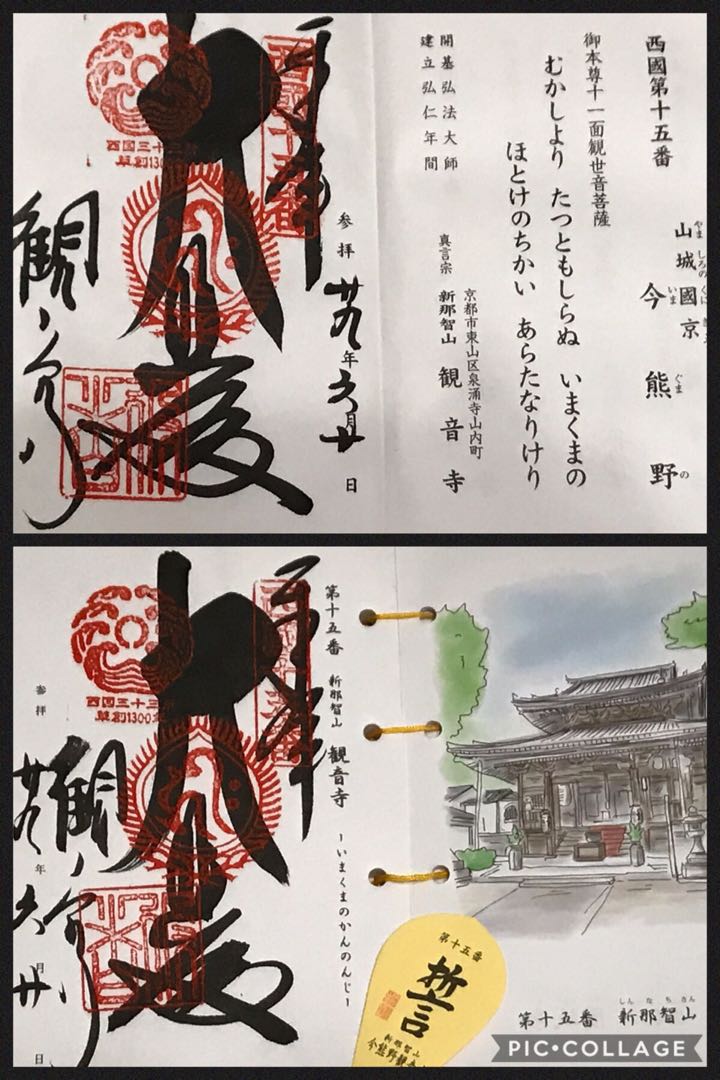 西國第十五番
山城國京
やましろのくに
今熊野
いまぐまの
御本尊十一面観世音菩薩
むかしより たつともしらぬ いまくまの
ほとけのちかい あらたなりけり
開基弘法大師
建立弘仁年間
京都市東山区泉涌寺山内町
真言宗 新那智山 観音寺
西國十五番
参拝 廿九年六月廿日
西国三十三所
草創130
大悲
観音寺
第十五番 新那智山 観音寺 ーいまくまのかんのんじー
西国三十三所
草創1300年
大悲
観音寺
参拝 廿九年六月廿日
第十五番
誓
新那智山
今熊野観
しんなちさん
第十五番 新那智山
PIC•COLLAGE